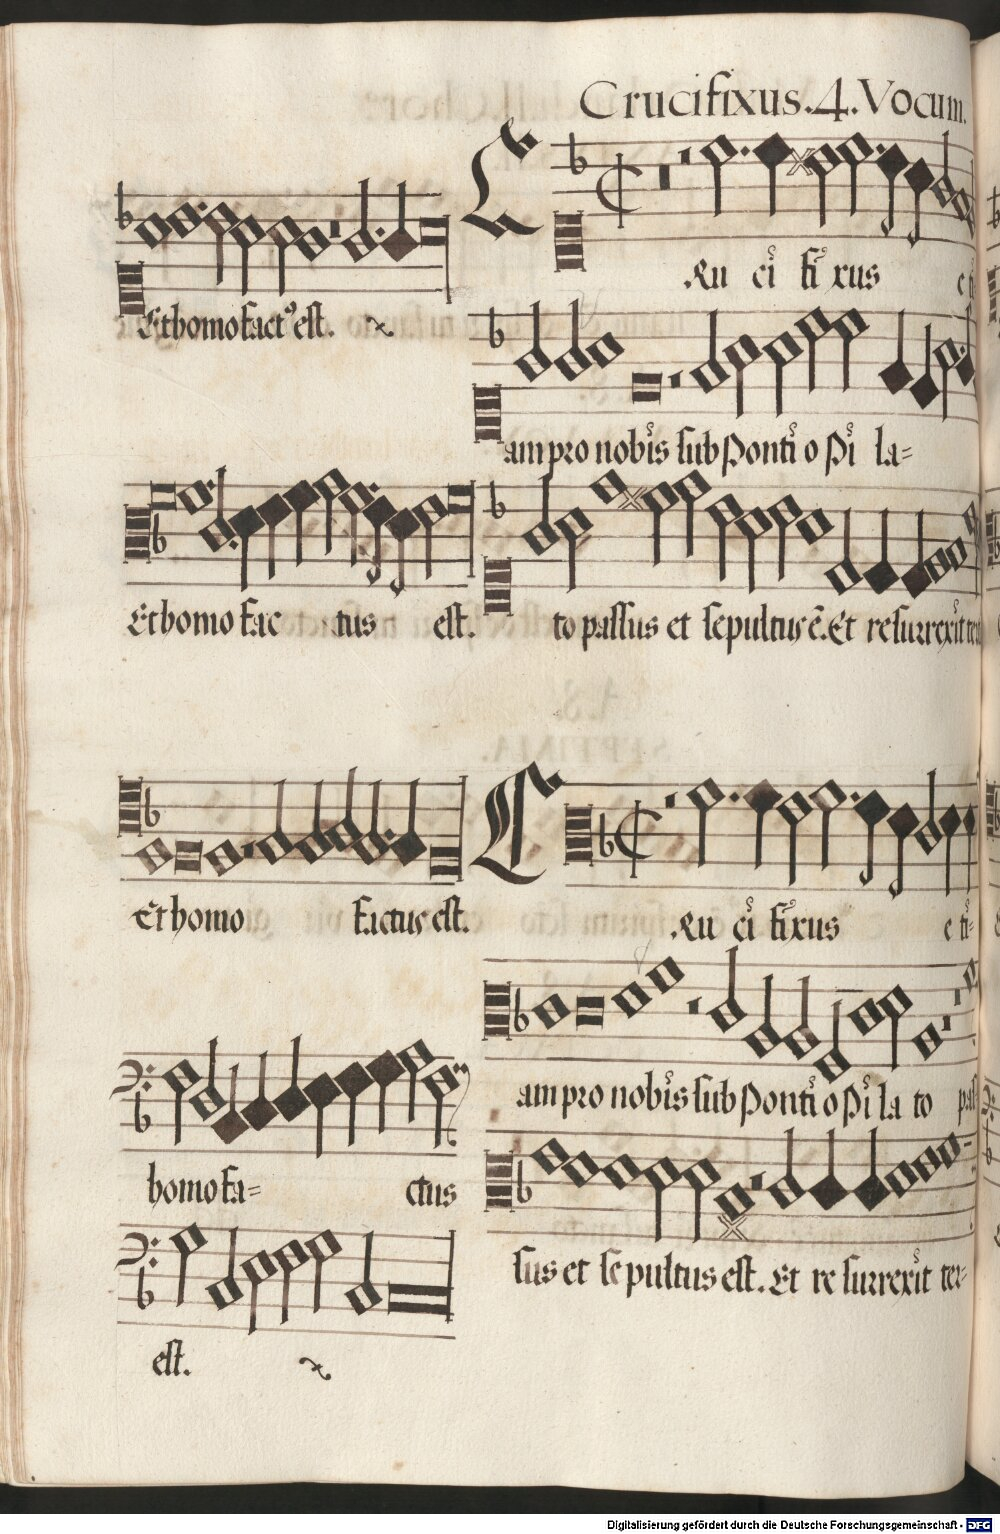 Crucifixus. 4. Vocum.
Et homo fact9 est.
C Ru ci fi xus e ti
am pro nobis sub Ponti o Pi la=
Et homo fac tus est.
to passus et sepultus ē. Et resurrexit ter
Et homo factus est.
C Ru ci fi xus e ti=
am pro nobis sub Ponti o Pi la to pas
homo fa= ctus
sus et sepultus est. Et re surrexit ter=
est.
Digitalisierung gefördert durch die Deutsche Forschungsgemeinschaft - DFG